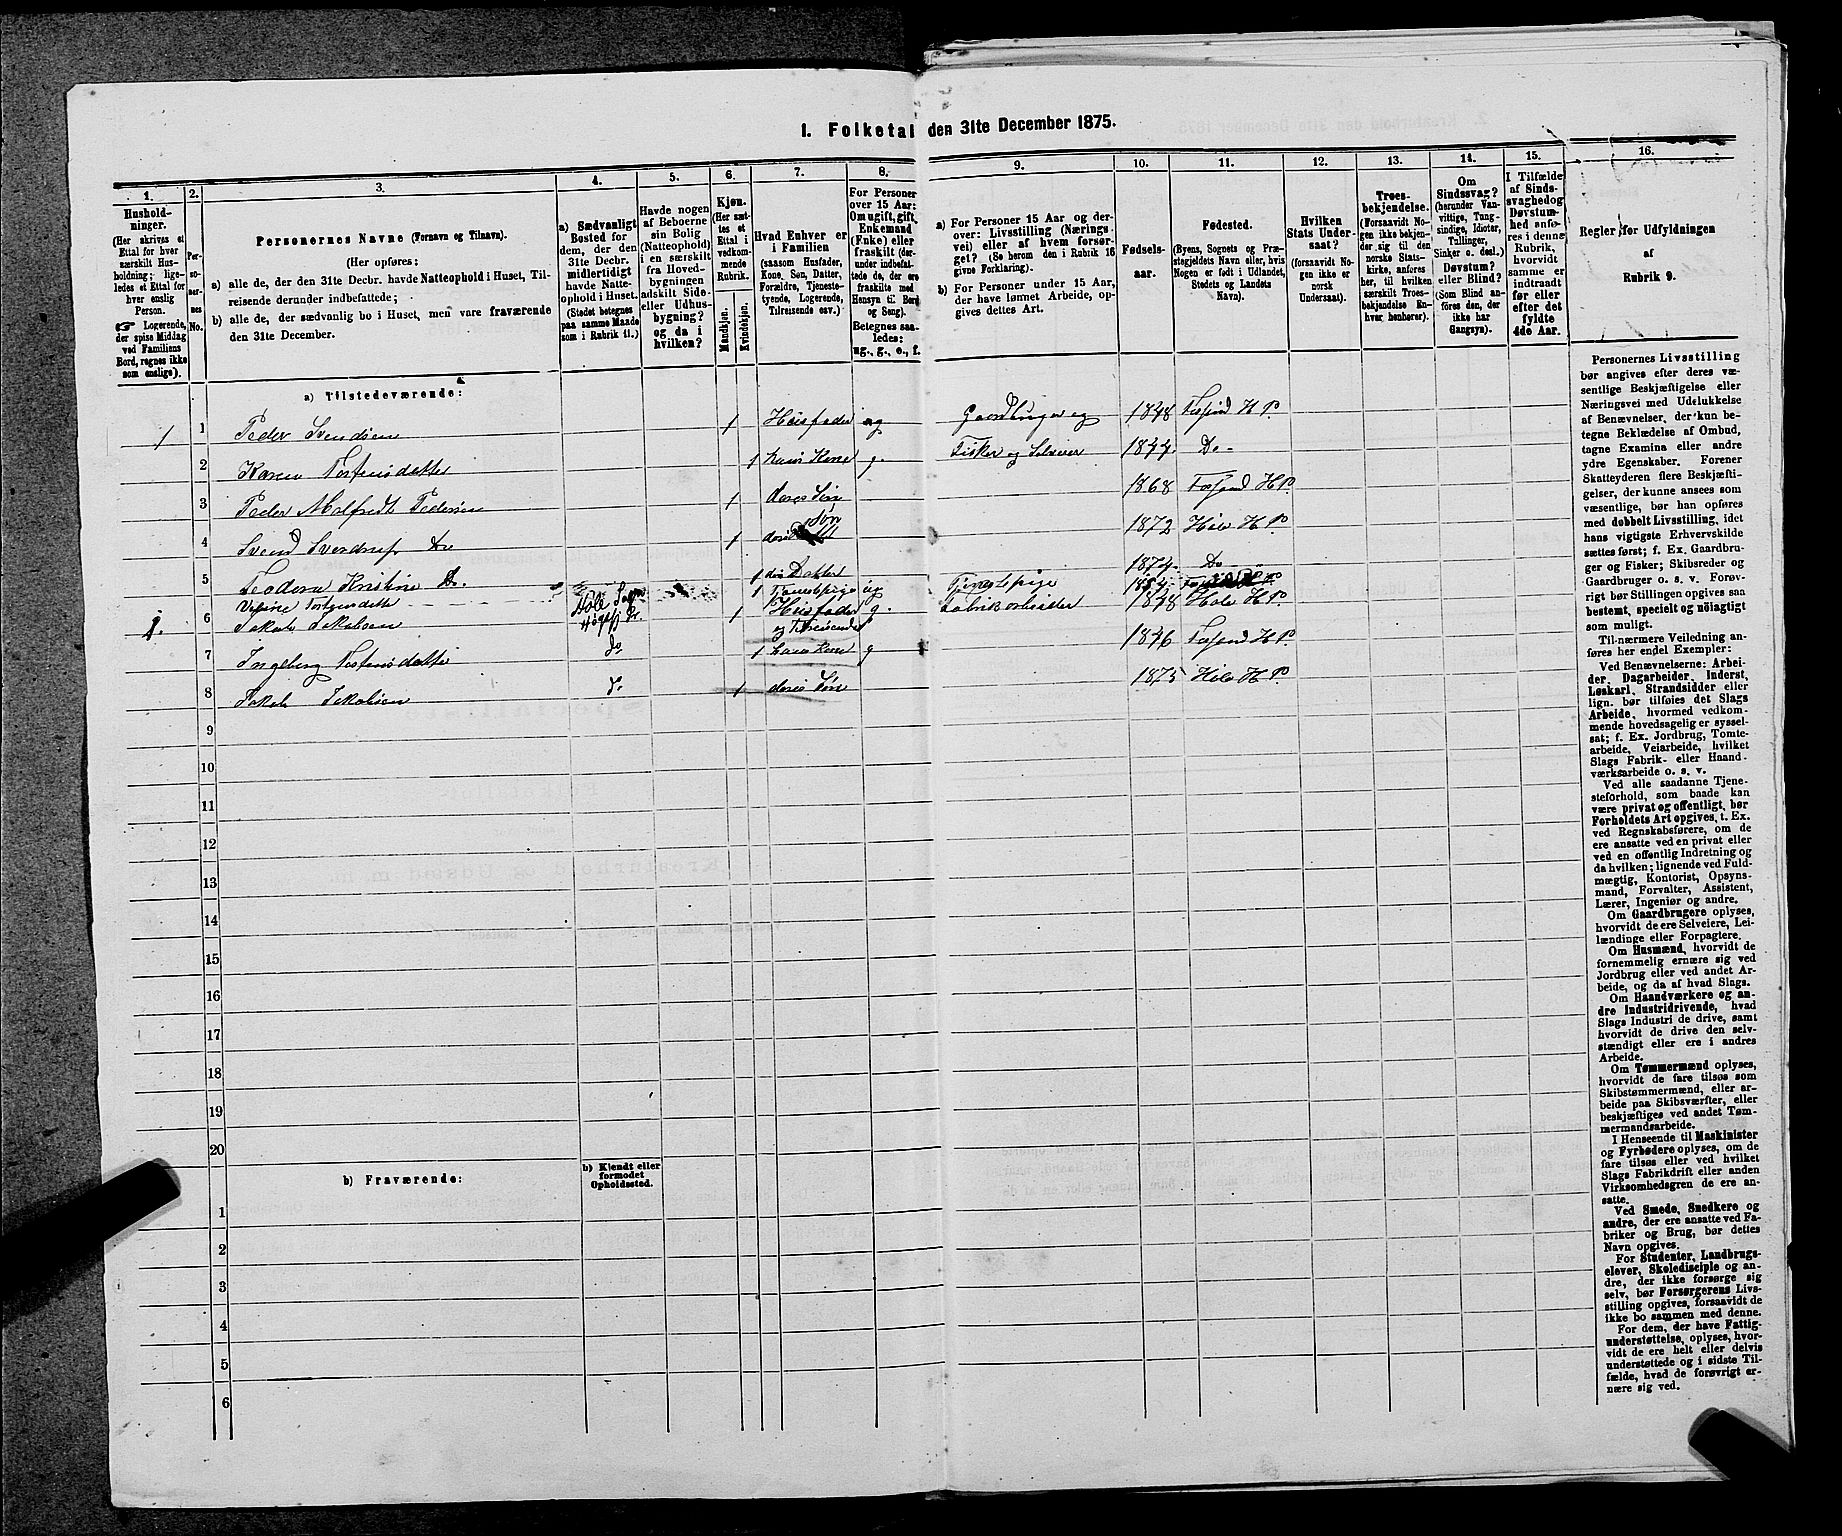 1. Folketal den 31te December 1875.
1.
Hushold-
ninger.
(Her skrives et
Ettal for hver
særskilt Hus-
holdning; lige-
ledes et Ettal for
hver enslig
Person.
☞ Logerende,
der spise Middag
ved Familiens
Bord, regnes ikke
som enslige).
2.
Per-
so-
ner-
nes
No.
3.
Personernes Navne (Fornavn og Tilnavn).
(Her opføres:
a) alle de, der den 31te Decbr. havde Natteophold i Huset, Til-
reisende derunder indbefattede;
b) alle de, der sædvanlig bo i Huset, men vare fraværende
den 31te December.
4.
a) Sædvanligt
Bosted for
dem, der den
31te Decbr.
midlertidigt
havde Natte-
ophold i Huset.
(Stedet betegnes
paa samme Maade
som i Rubrik 11.)
5.
Havde nogen
af Beboerne
sin Bolig
(Natteophold)
i en særskilt
fra Hoved-
bygningen
adskilt Side-
eller Udhus-
bygning?
og da i
hvilken?
6.
Kjøn.
(Her sæt-
tes et
Ettal i
vedkom-
mende
Rubrik.
Mandkjøn.
Kvindekjøn.
7.
Hvad Enhver er
i Familien
(saasom Husfader,
Kone, Søn, Datter,
Forældre, Tjeneste-
tyende, Logerende,
Tilreisende osv.)
8.
For Personer
over 15 Aar:
Om ugift, gift,
Enkemand
(Enke) eller
fraskilt (der-
under indbefat-
tede de, der ere
fraskilte med
Hensyn til Bord
og Seng).
Betegnes saa-
ledes:
ug., g., e., f.
9.
a) For Personer 15 Aar og der-
over: Livsstilling (Nærings-
vei) eller af hvem forsør-
get? (Se herom den i Rubrik 16
givne Forklaring).
b) For Personer under 15 Aar,
der have lønnet Arbeide, op-
gives dettes Art.
10.
Fødsels-
aar.
11.
Fødested.
(Byens, Sognets og Præ-
stegjeldets Navn eller, hvis
Nogen er født i Udlandet,
Stedets og Landets
Navn).
12.
Hvilken
Stats Under-
saat?
(forsaavidt No-
gen ikke er
norsk
Undersaat).
13.
Troes-
bekjendelse.
(Forsaavidt No-
gen ikke bekjen-
der sig til den
norske Stats-
kirke, anføres
her, til hvilken
særskilt Troes-
bekjendelse En-
hver henhører).
14.
Om
Sindssvag?
(herunder Van-
vittige, Tung-
sindige, Idioter,
Tullinger,
Sinker o. desl.)
Døvstum?
eller Blind?
(Som Blind an-
føres den, der
ikke har
Gangsyn).
15.
I Tilfælde
af Sinds-
svaghed og
Døvstum-
hed anfø-
res i denne
Rubrik,
hvorvidt
samme er
indtraadt
før eller
efter det
fyldte
4de Aar.
16.
Regler for Udfyldningen
af
Rubrik 9.
a) Tilstedeværende:
1 1 Peder Svendsen 1 Husfader ug Gaardbruger og 1848 Fossand H P
2 Karen Tostensdatter 1 hans Kone g. Fisker og Selveier 1844 Do
3 Peder Malfredt Pedersen 1 deres Søn 1868 Fossand H P.
4 Svend Sverdrup Do 1 deres Søn 1872 Hole H P
5 Teodora Kristine Do. 1 deres Datter 1874 Do
Tostensdatter 1 Tjenestepige ug Tjenestepige
1. 6 Jakob Jakobsen Hole Sogn 1 Husfader g. Fabrikarbeider 1848 Hole H P.
og Tilreisende
7 Ingeborg Tostensdatter do 1 hans Kone g 1846 Fossand H P.
8 Jakob Jakobsen do 1 deres Søn 1875 Hole H P.
9
10
11
12
13
14
15
16
17
18
19
20
b) Fraværende:
b) Kjendt eller
formodet
Opholdssted.
1
2
3
4
5
6
Personernes Livsstilling
bør angives efter deres væ-
sentlige Beskjæftigelse eller
Næringsvei med Udelukkelse
af Benævnelser, der kun be-
tegne Beklædelse af Ombud,
tagne Examina eller andre
ydre Egenskaber. Forener
Skatteyderen flere Beskjæfti-
gelser, der kunne ansees som
væsentlige, bør han opføres
med dobbelt Livsstilling, idet
hans vigtigste Erhvervskilde
sættes først; f. Ex. Gaardbru-
ger og Fisker; Skibsreder og
Gaardbruger o. s. v. Forøv-
rigt bør Stillingen opgives saa
bestemt, specielt og nøiagtigt
som muligt.
Til nærmere Veiledning an-
føres her endel Exempler:
Ved Benævnelserne: Arbei-
der, Dagarbeider, Inderst,
Løskarl, Strandsidder eller
lign. bør tilføies det Slags
Arbeide, hvormed vedkom-
mende hovedsagelig er syssel-
sat; f. Ex. Jordbrug, Tomte-
arbeide, Veiarbeide, hvilket
Slags Fabrik- eller Haand-
værksarbeide o. s. v.
Ved alle saadanne Tjene-
steforhold, som baade kan
være privat og offentligt, bør
Forholdets Art opgives, t. Ex.
ved Regnskabsførere, om de
ere ansatte ved en privat eller
ved en offentlig Indretning og
da hvilken; lignende ved Fuld-
mægtig, Kontorist, Opsyns-
mand, Forvalter, Assistent,
Lærer, Ingeniør og andre.
Om Gaardbrugere oplyses,
hvorvidt de ere Selveiere, Lei-
lændinge eller Forpagtere.
Om Husmænd, hvorvidt de
fornemmelig ernære sig ved
Jordbrug eller ved andet Ar-
beide, og da af hvad Slags.
Om Haandværkere og an-
dre Industridrivende, hvad
Slags Industri de drive, samt
hvorvidt de drive den selv-
stændigt eller ere i andres
Arbeide.
Om Tømmermænd oplyses,
hvorvidt de fare tilsøs som
Skibstømmermænd, eller ar-
beide paa Skibsværfter, eller
beskjæftiges ved andet Tøm-
mermandsarbeide.
I Henseende til Maskinister
og Fyrbødere oplyses, om de
fare tilsøs eller ved hvilket
Slags Fabrikdrift eller anden
Virksomhedsgren de ere an-
satte.
Ved Smede, Snedkere og
andre, der ere ansatte ved Fa-
briker og Brug, bør dettes
Navn opgives.
For Studenter, Landbrugs-
elever, Skoledisciple og an-
dre, der ikke forsørge sig
selv, bør Forsørgerens Livs-
stilling opgives, forsaavidt de
ikke bo sammen med denne.
For dem, der have Fattig-
understøttelse, oplyses, hvor-
vidt de ere helt eller delvis
understøttede og i sidste Til-
fælde, hvad de forøvrigt er-
nære sig ved.